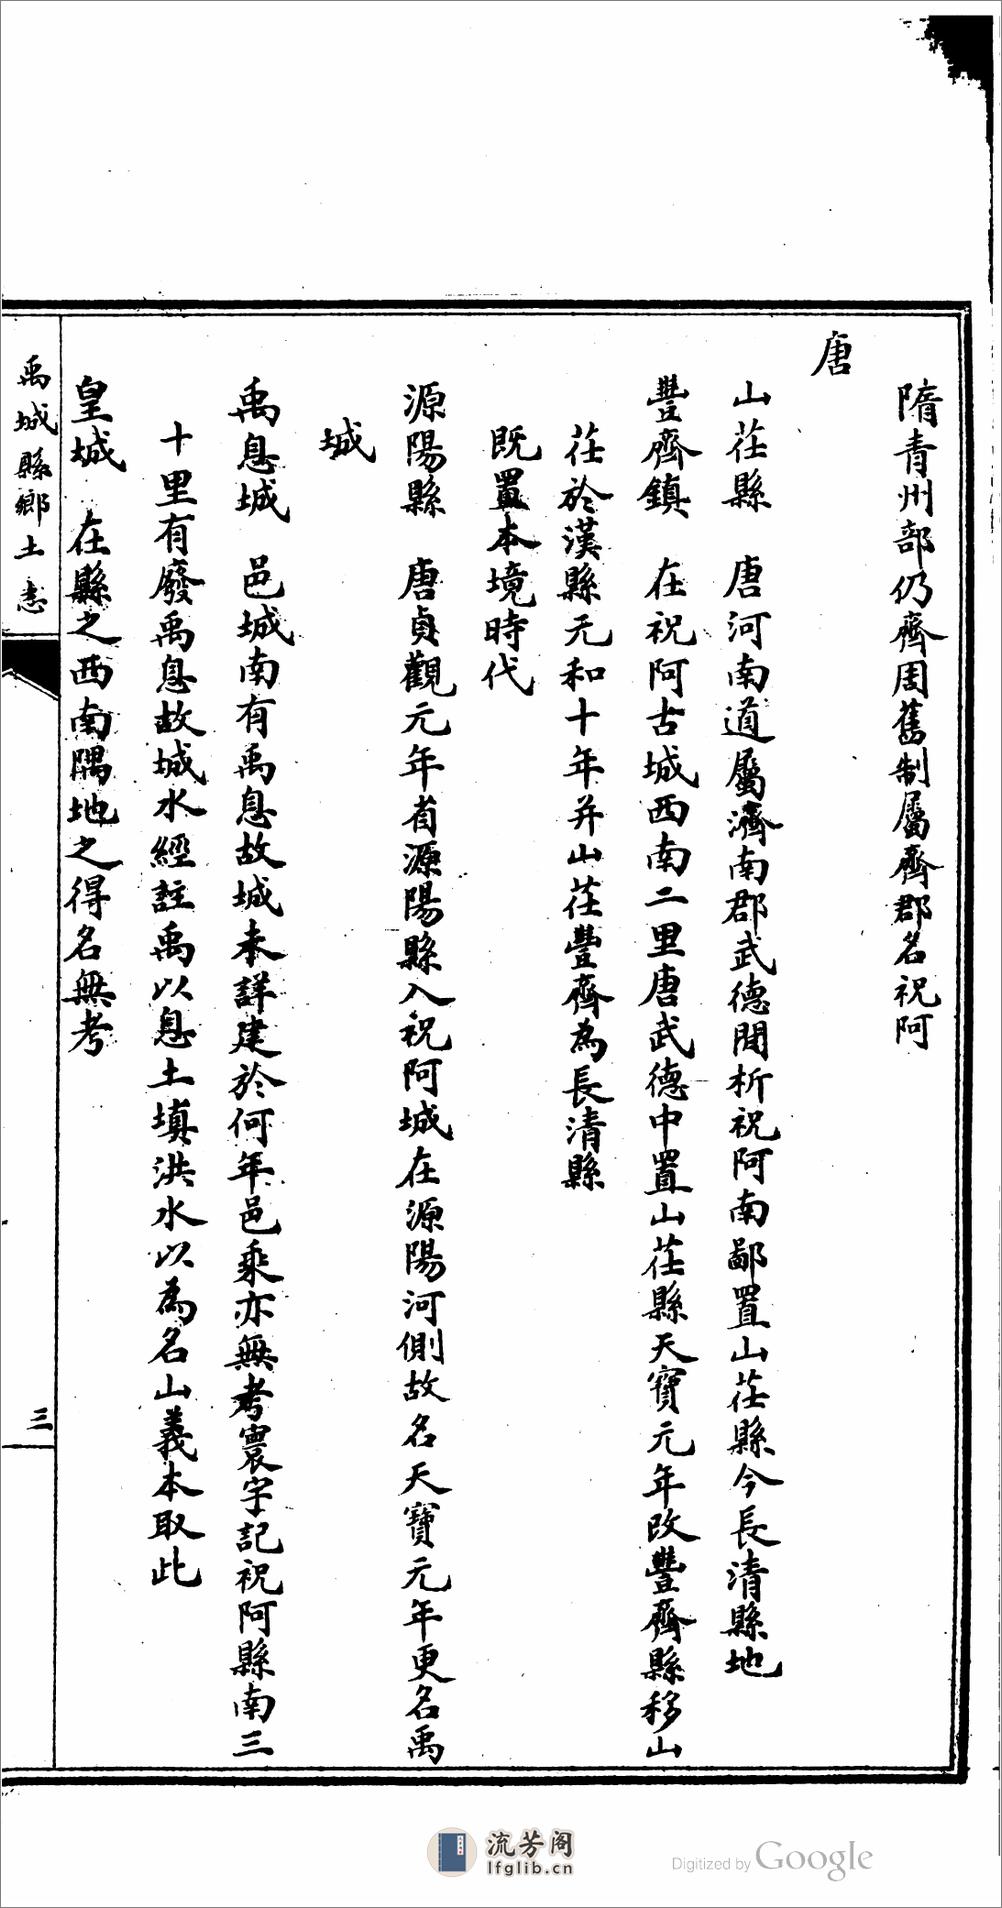 隋青州部仍齊周舊制屬齊郡名祝阿
唐
山茌縣　唐河南道屬濟南郡武德間析祝阿南鄙置山茌縣今長清縣地
豐齊鎮　在祝阿古城西南二里唐武德中置山茌縣天寶元年改豐齊縣移山
茌於漢縣元和十年并山茌豐齊為長清縣
既置本境時代
源陽縣　唐貞觀元年省源陽縣入祝阿城在源陽河側故名天寶元年更名禹
城
禹息城　邑城南有禹息故城未詳建於何年邑乘亦無考寰宇記祝阿縣南三
十里有廢禹息故城水經註禹以息土填洪水以為名山義本取此
皇城　在縣之西南隅地之得名無考
禹城縣鄉土志
三
流芳阁
lfglib.cn
Digitized by Google